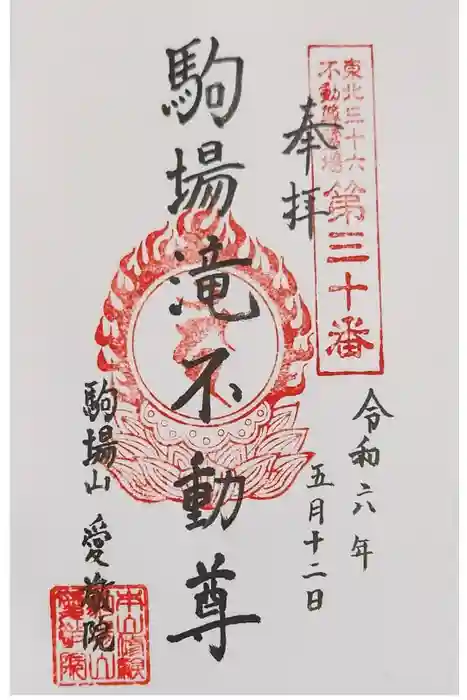 東北三十六
不動尊霊場
第三十番
奉拝
令和六年
五月十二日
駒場滝不動尊
駒場山 愛敬院